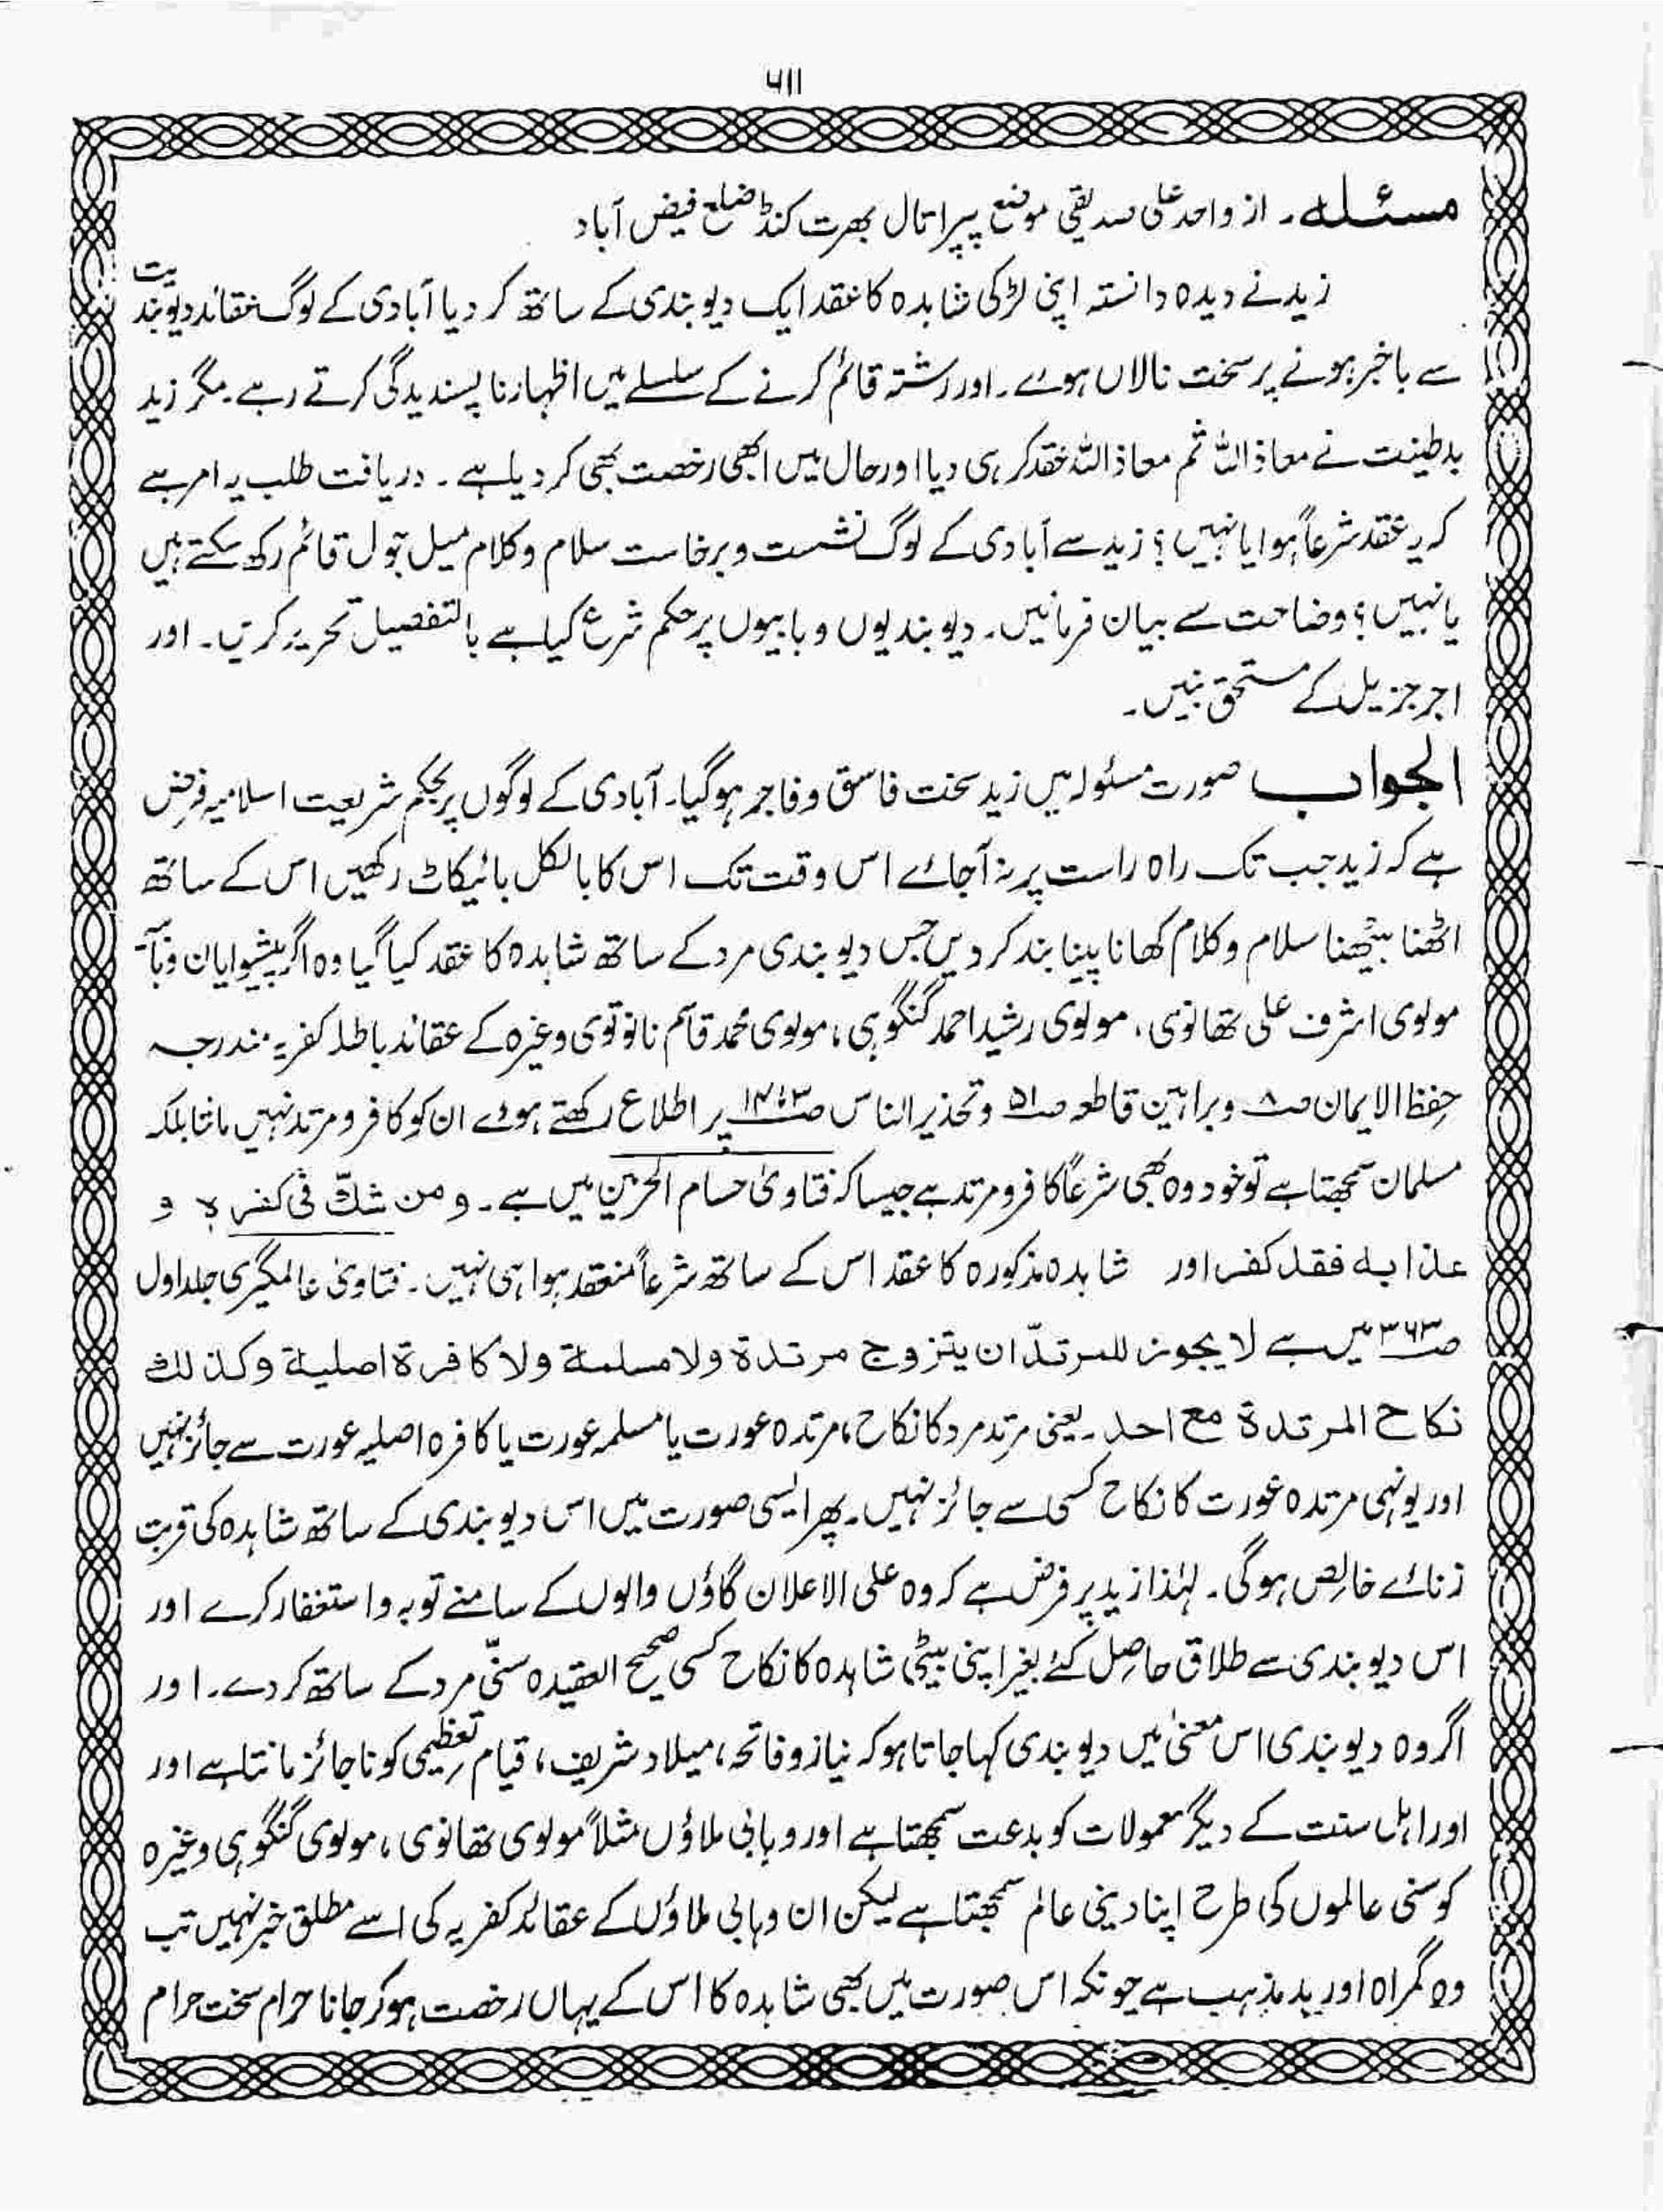 ۶۱۱
مسئلہ۔ از واحد علی صدیقی موضع پیپرا تال بھرت کنڈ ضلع فیض آباد
زید نے دیدہ دانستہ اپنی لڑکی شاہدہ کا عقد ایک دیوبندی کے ساتھ کر دیا آبادی کے لوگ عقائد دیوبندیت
سے باخبر ہونے پر سخت نالاں ہوے۔ اور رشتہ قائم کرنے کے سلسلے میں اظہار ناپسندیدگی کرتے رہے۔ مگر زید
بدطینت نے معاذ اللہ ثم معاذ اللہ عقد کر ہی دیا اور حال میں ابھی رخصت بھی کر دیا ہے۔ دریافت طلب یہ امر ہے
کہ یہ عقد شرعاً ہوا یا نہیں؟ زید سے آبادی کے لوگ نشست و برخاست سلام و کلام میل جول قائم رکھ سکتے ہیں
یا نہیں؟ وضاحت سے بیان فرمائیں۔ دیوبندیوں وہابیوں پر حکم شرع کیا ہے بالتفصیل تحریر کریں۔ اور
اجر جزیل کے مستحق بنیں۔
الجواب صورت مسئولہ میں زید سخت فاسق و فاجر ہو گیا۔ آبادی کے لوگوں پر بحکم شریعت اسلامیہ فرض
ہے کہ زید جب تک راہ راست پر نہ آجائے اس وقت تک اس کا بالکل بائیکاٹ رکھیں اس کے ساتھ
اٹھنا بیٹھنا سلام و کلام کھانا پینا بند کر دیں جس دیوبندی مرد کے ساتھ شاہدہ کا عقد کیا گیا وہ اگر پیشوایان وہابیہ
مولوی اشرف علی تھانوی، مولوی رشید احمد گنگوہی، مولوی محمد قاسم نانوتوی وغیرہ کے عقائد باطلہ کفریہ مندرجہ
حفظ الایمان صـ۸ وبراہین قاطعہ صـ۵۱ وتحذیر الناس صـ پر اطلاع رکھتے ہوے ان کو کافر و مرتد نہیں مانتا بلکہ
مسلمان سمجھتا ہے تو خود وہ بھی شرعاً کافر و مرتد ہے جیسا کہ فتاویٰ حسام الحرمین میں ہے۔ و من شكّ فی كفره و
عذابه فقد كفر اور شاہدہ مذکورہ کا عقد اس کے ساتھ شرعاً منعقد ہوا ہی نہیں۔ فتاویٰ عالمگیری جلد اول
صـ۳۶۳ میں ہے لا یجوز للمرتدّ ان یتزوج مرتدة ولا مسلمة ولا كافرة اصلیة وكذلك
نكاح المرتدة مع احد۔ یعنی مرتد مرد کا نکاح، مرتدہ عورت یا مسلمہ عورت یا کافرہ اصلیہ عورت سے جائز نہیں
اور یونہی مرتدہ عورت کا نکاح کسی سے جائز نہیں۔ پھر ایسی صورت میں اس دیوبندی کے ساتھ شاہدہ کی قربت
زنائے خالص ہوگی۔ لہٰذا زید پر فرض ہے کہ وہ علی الاعلان گاؤں والوں کے سامنے توبہ و استغفار کرے اور
اس دیوبندی سے طلاق حاصل کئے بغیر اپنی بیٹی شاہدہ کا نکاح کسی صحیح العقیدہ سنّی مرد کے ساتھ کر دے۔ اور
اگر وہ دیوبندی اس معنیٰ میں دیوبندی کہا جاتا ہو کہ نیاز و فاتحہ، میلاد شریف، قیام تعظیمی کو ناجائز مانتا ہے اور
اور اہل سنت کے دیگر معمولات کو بدعت سمجھتا ہے اور وہابی ملاؤں مثلاً مولوی تھانوی، مولوی گنگوہی وغیرہ
کو سنی عالموں کی طرح اپنا دینی عالم سمجھتا ہے لیکن ان وہابی ملاؤں کے عقائد کفریہ کی اسے مطلق خبر نہیں تب
وہ گمراہ اور بد مذہب ہے چونکہ اس صورت میں بھی شاہدہ کا اس کے یہاں رخصت ہو کر جانا حرام سخت حرام